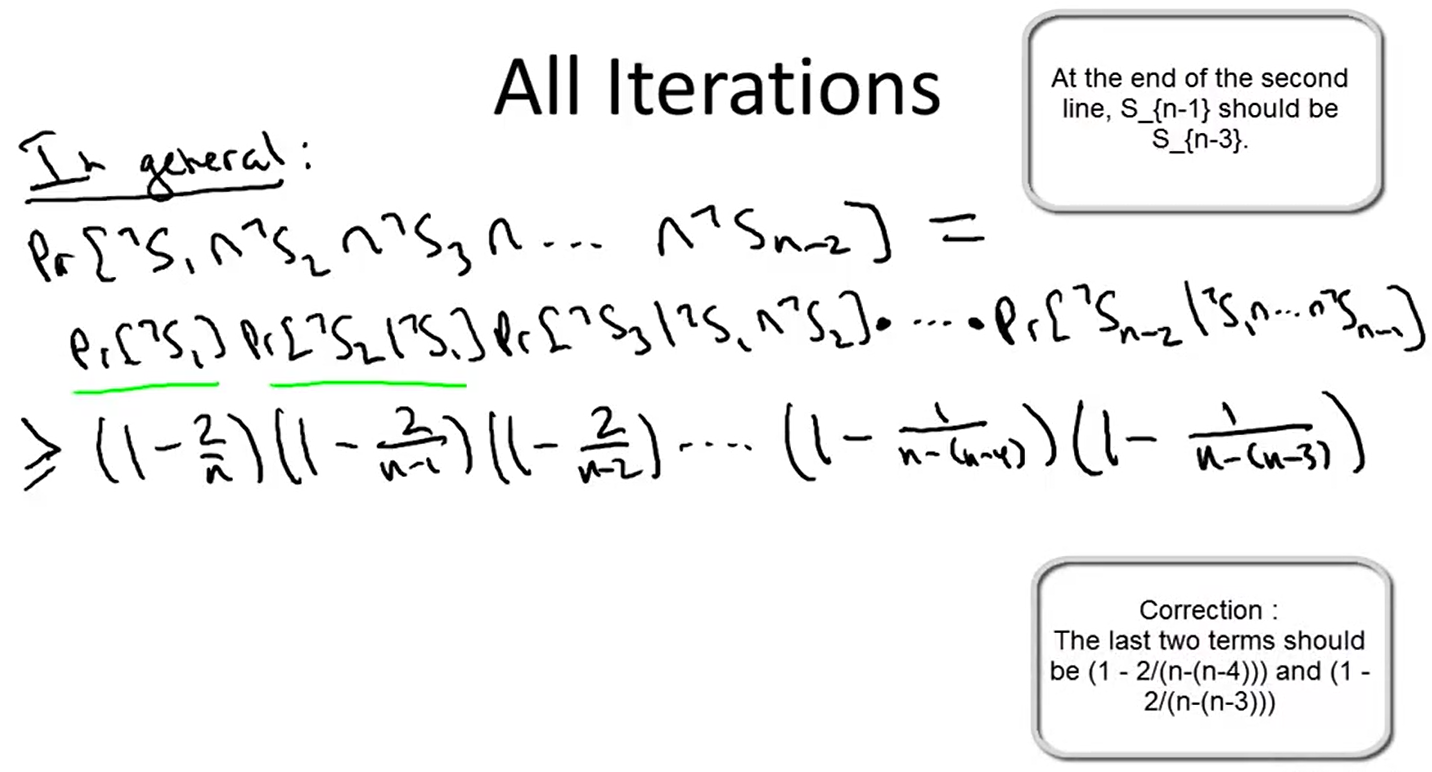 All Iterations
At the end of the second
line, S_{n-1} should be
S_{n-3}.
In general:
Pr[¬S₁ ∩ ¬S₂ ∩ ¬S₃ ∩ ... ∩ ¬Sₙ₋₂] =
Pr[¬S₁] Pr[¬S₂|¬S₁] Pr[¬S₃|¬S₁ ∩ ¬S₂] · .... · Pr[¬Sₙ₋₂|¬S₁ ∩ ... ∩ ¬Sₙ₋₁]
≥ (1 - 2/n)(1 - 2/(n-1))(1 - 2/(n-2)) ..... (1 - 1/(n-(n-4)))(1 - 1/(n-(n-3)))
Correction :
The last two terms should
be (1 - 2/(n-(n-4))) and (1 -
2/(n-(n-3)))